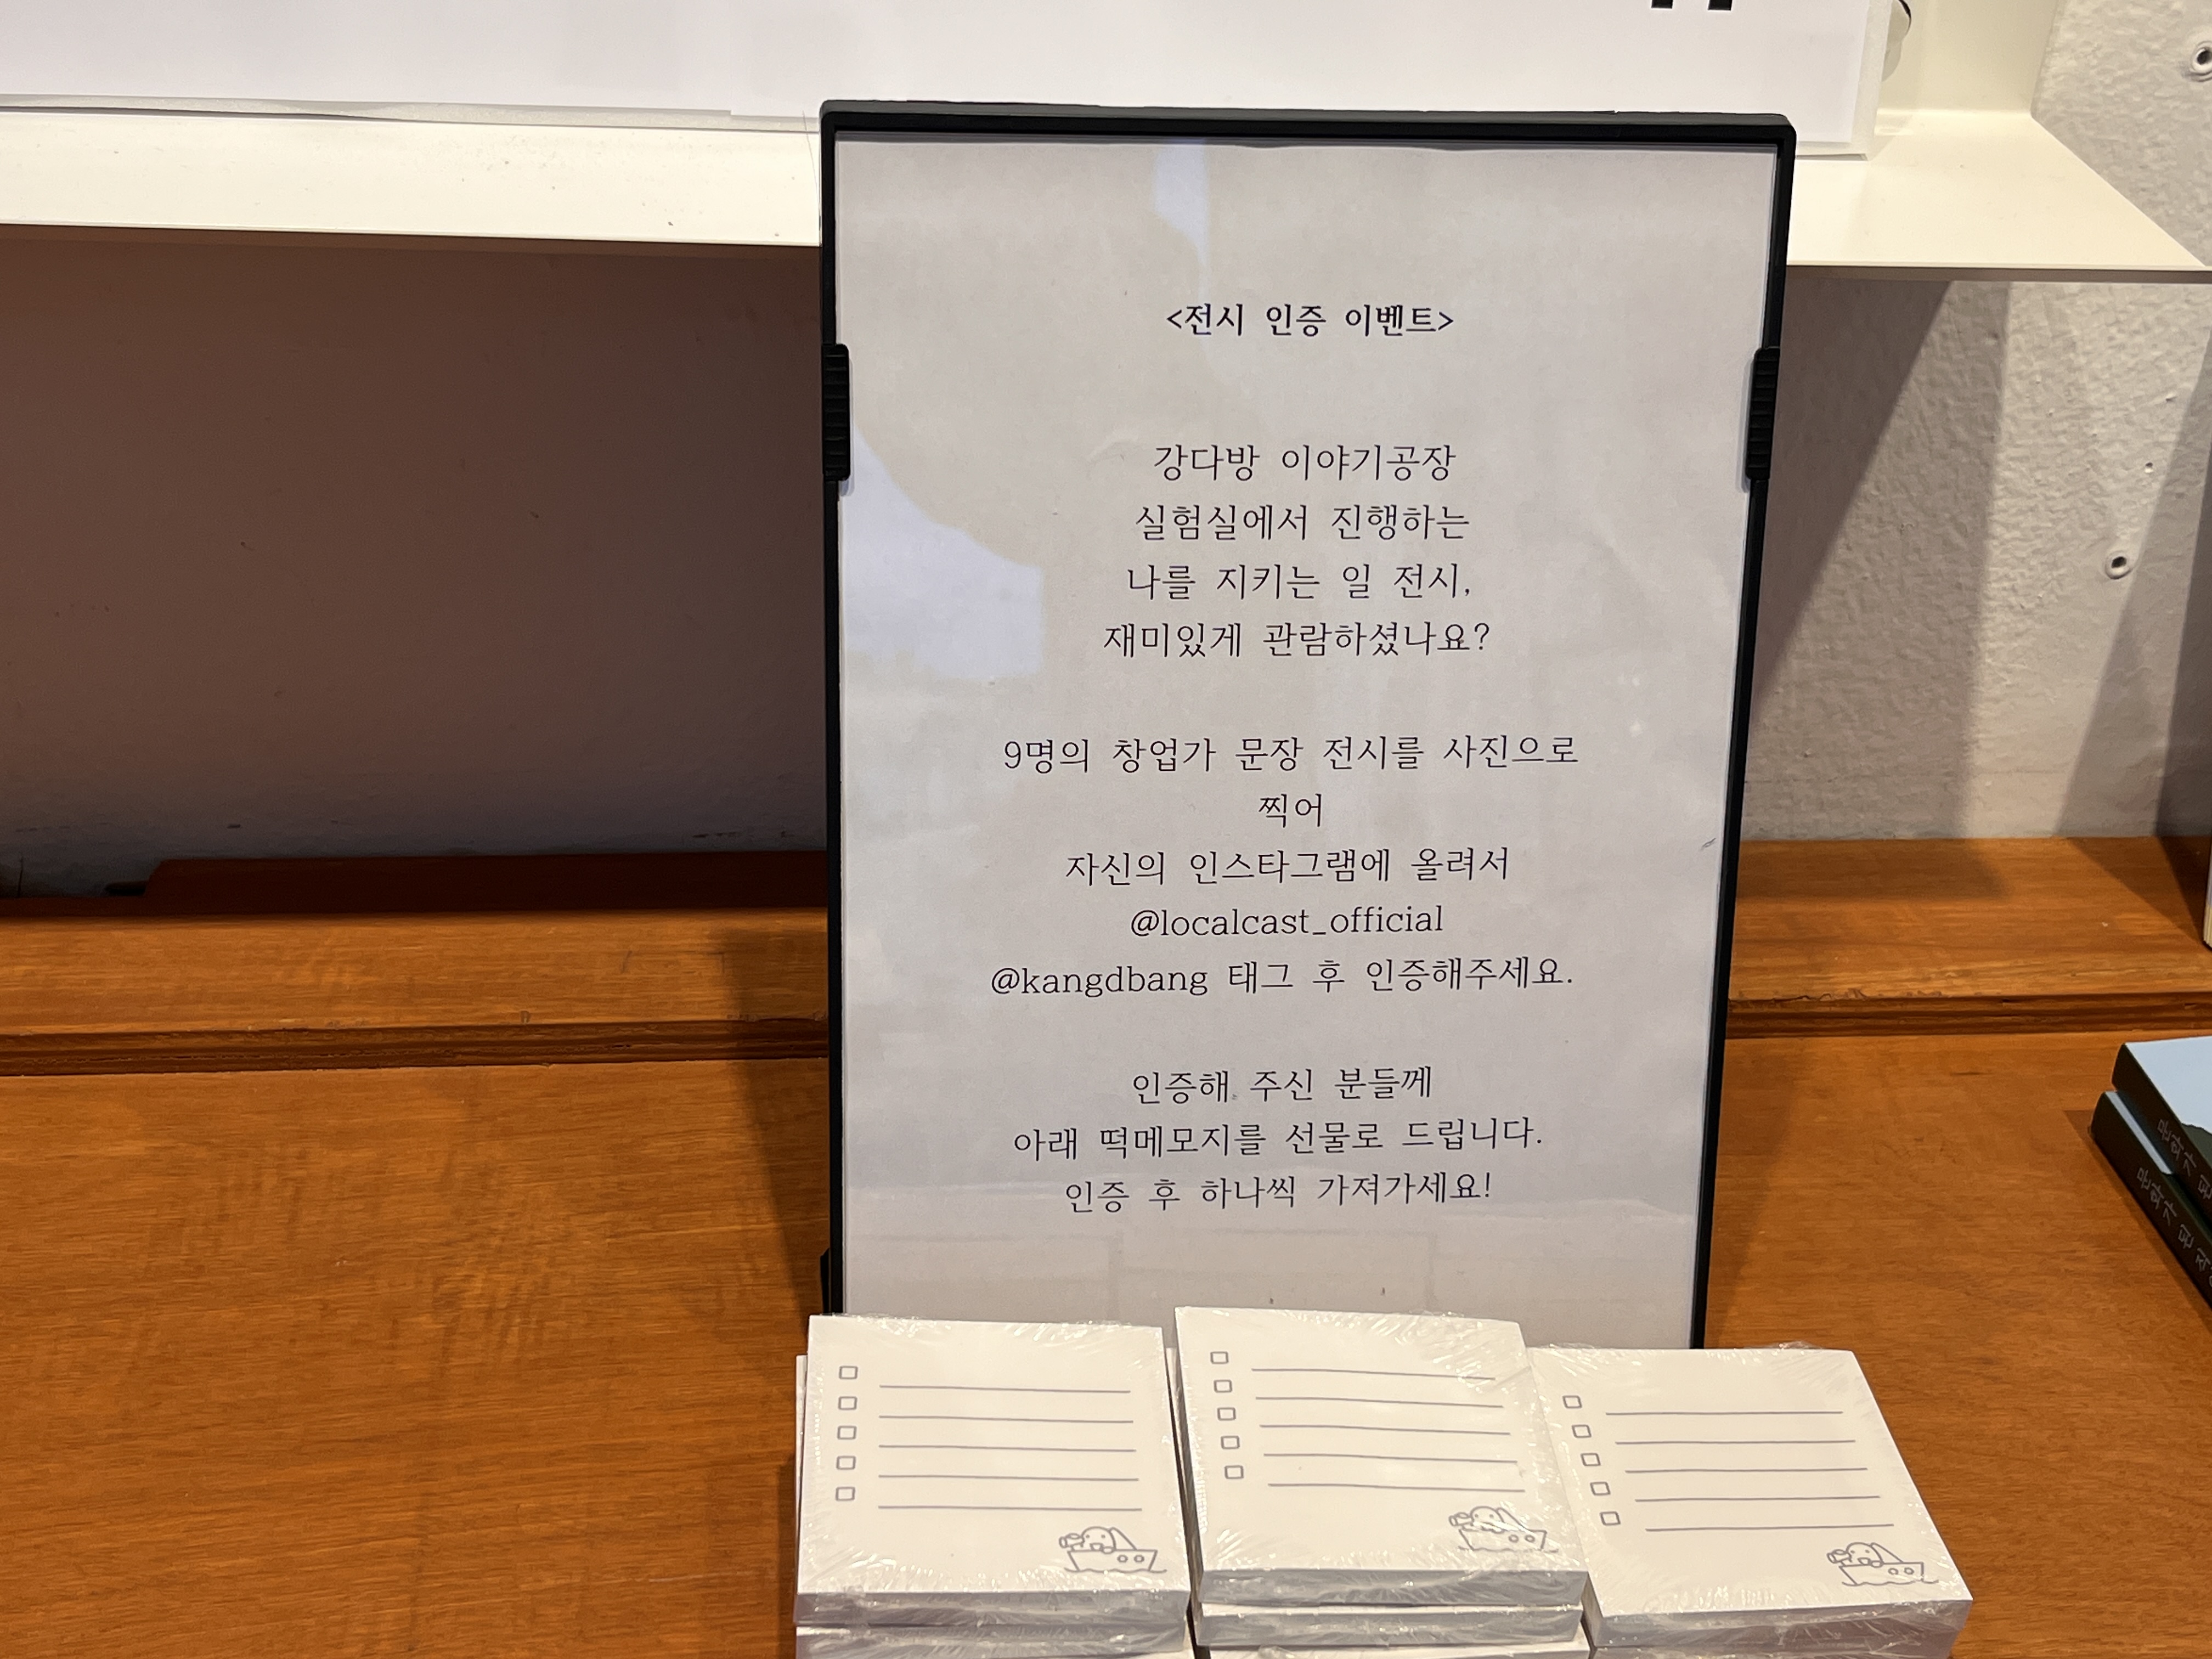 <전시 인증 이벤트>
강다방 이야기공장
실험실에서 진행하는
나를 지키는 일 전시,
재미있게 관람하셨나요?
9명의 창업가 문장 전시를 사진으로
찍어
자신의 인스타그램에 올려서
@localcast_official
@kangdbang 태그 후 인증해주세요.
인증해 주신 분들께
아래 떡메모지를 선물로 드립니다.
인증 후 하나씩 가져가세요!
문화가
문화가 된